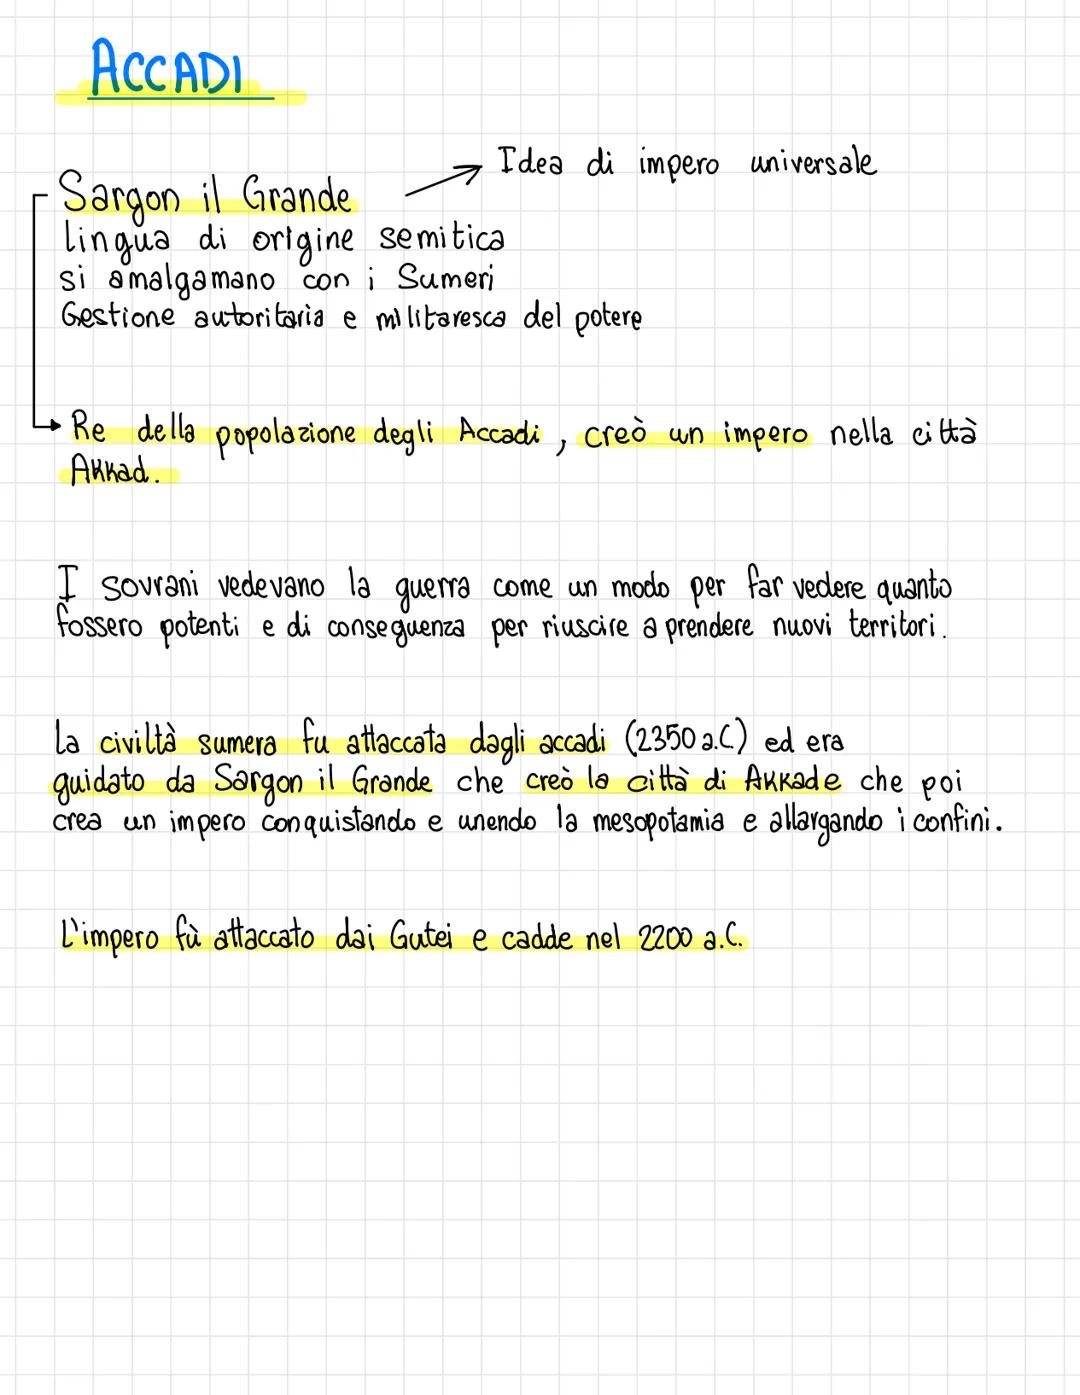 ACCADI
Idea di impero universale
Sargon il Grande
lingua di origine semitica
si amalgamano con i Sumeri
Gestione autoritaria e militaresca del potere
Re della popolazione degli Accadi, creò un impero nella città
Akkad.
I sovrani vedevano la guerra come un modo per far vedere quanto
fossero potenti e di conseguenza per riuscire a prendere nuovi territori.
La civiltà sumera fu attaccata dagli accadi (2350 a.C) ed era
guidato da Sargon il Grande che creò la città di Akkade che poi
crea un impero conquistando e unendo la mesopotamia e allargando i confini.
L'impero fù attaccato dai Gutei e cadde nel 2200 a.C.